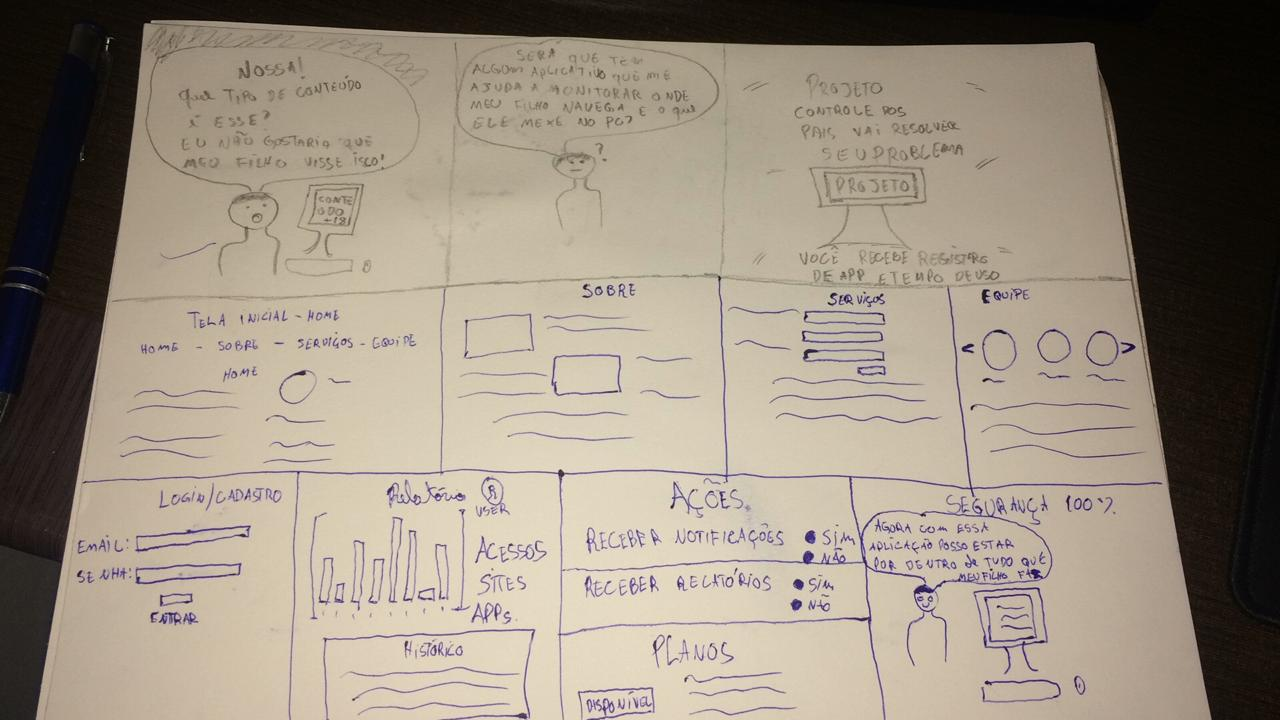 NOSSA!
QUE TIPO DE CONTEÚDO
É ESSE?
EU NÃO GOSTARIA QUE
MEU FILHO VISSE ISSO!
CONTE
ÚDO
+18
SERÁ QUE TEM
ALGUM APLICATIVO QUE ME
AJUDA A MONITORAR ONDE
MEU FILHO NAVEGA E O QUE
ELE MEXE NO PC?
?
PROJETO
CONTROLE DOS
PAIS VAI RESOLVER
SEU PROBLEMA
PROJETO
VOCÊ RECEBE REGISTRO
DE APP E TEMPO DE USO
TELA INICIAL - HOME
HOME - SOBRE - SERVIÇOS - EQUIPE
HOME
SOBRE
SERVIÇOS
EQUIPE
< >
LOGIN/CADASTRO
EMAIL:
SENHA:
ENTRAR
Relatório
USER
ACESSOS
SITES
APPs.
HISTÓRICO
AÇÕES
RECEBER NOTIFICAÇÕES
SIM
NÃO
RECEBER RELATÓRIOS
SIM
NÃO
PLANOS
DISPONÍVEL
SEGURANÇA 100%
AGORA COM ESSA
APLICAÇÃO POSSO ESTAR
POR DENTRO DE TUDO QUE
MEU FILHO FAZ